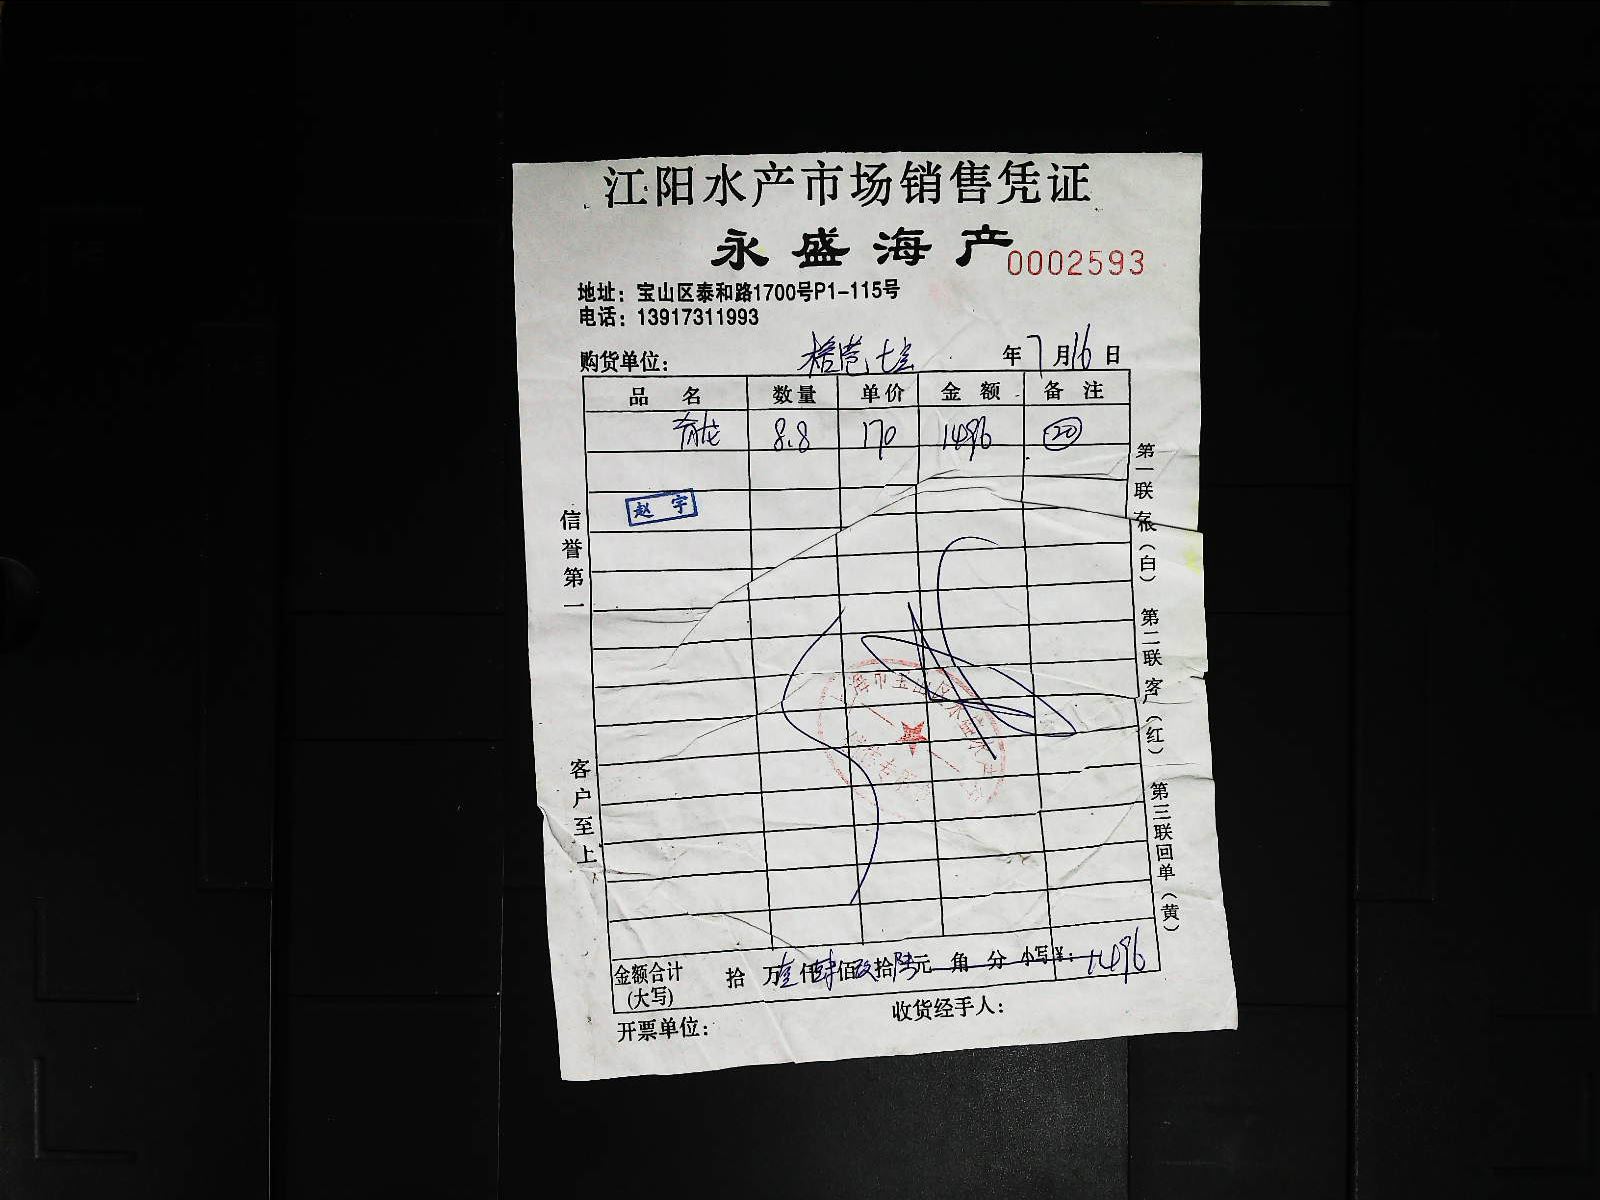 江阳水产市场销售凭证
永盛海产
0002593
地址：宝山区泰和路1700号P1-115号
电话：13917311993
购货单位： 年 7 月 16 日
品 名 数量 单价 金 额 备 注
青龙 8.8 170 1496 20
赵 宇
信誉第一
客户至上
第一联 存根（白） 第二联 客户（红） 第三联 回单（黄）
金额合计 拾 万壹仟肆佰玖拾陆元 角 分 小写￥：1496
(大写)
收货经手人：
开票单位：